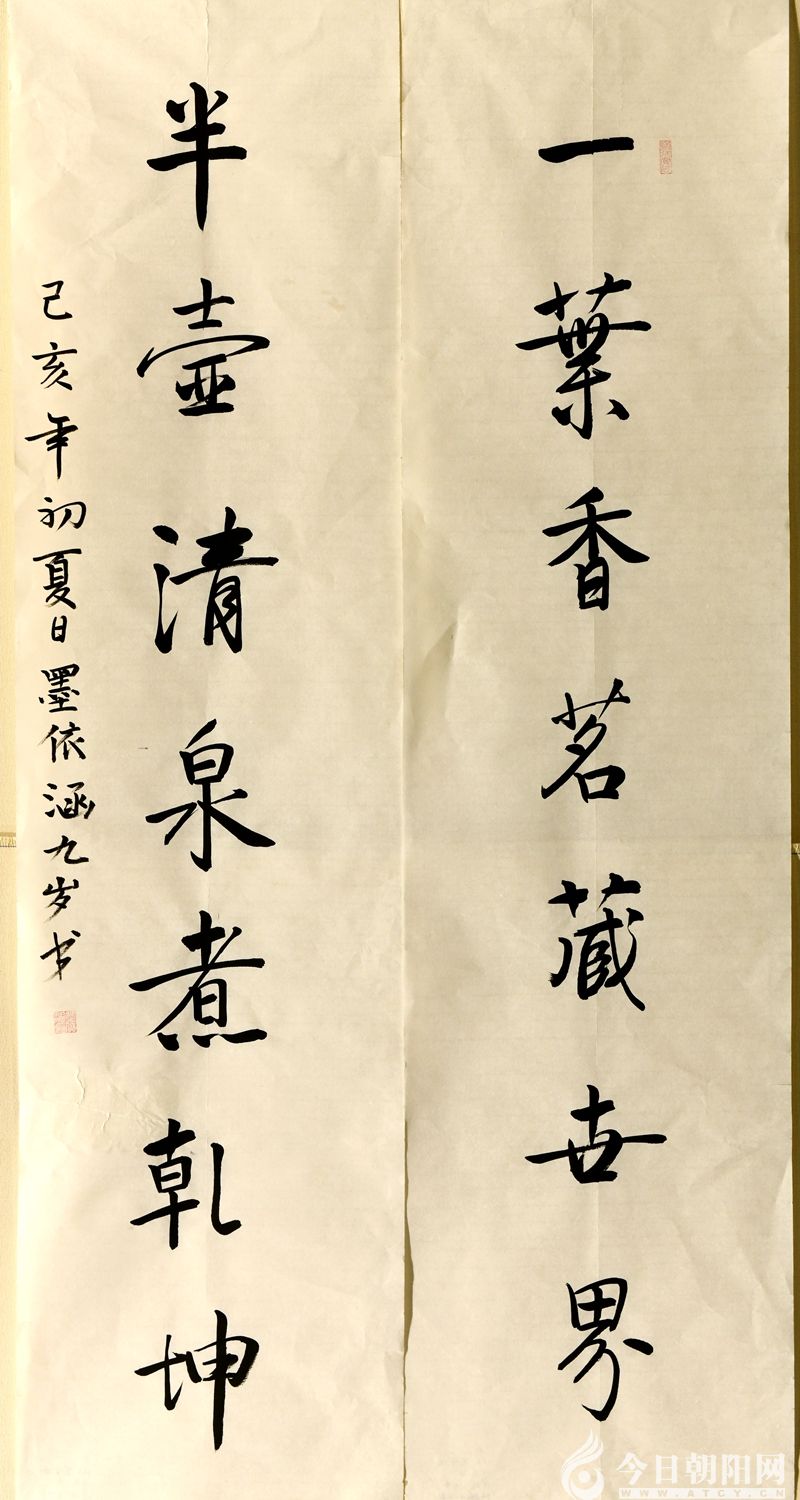 一葉香茗藏世界
半壺清泉煮乾坤
己亥年初夏日墨依涵九岁书
今日朝阳网
WWW.ATCY.CN